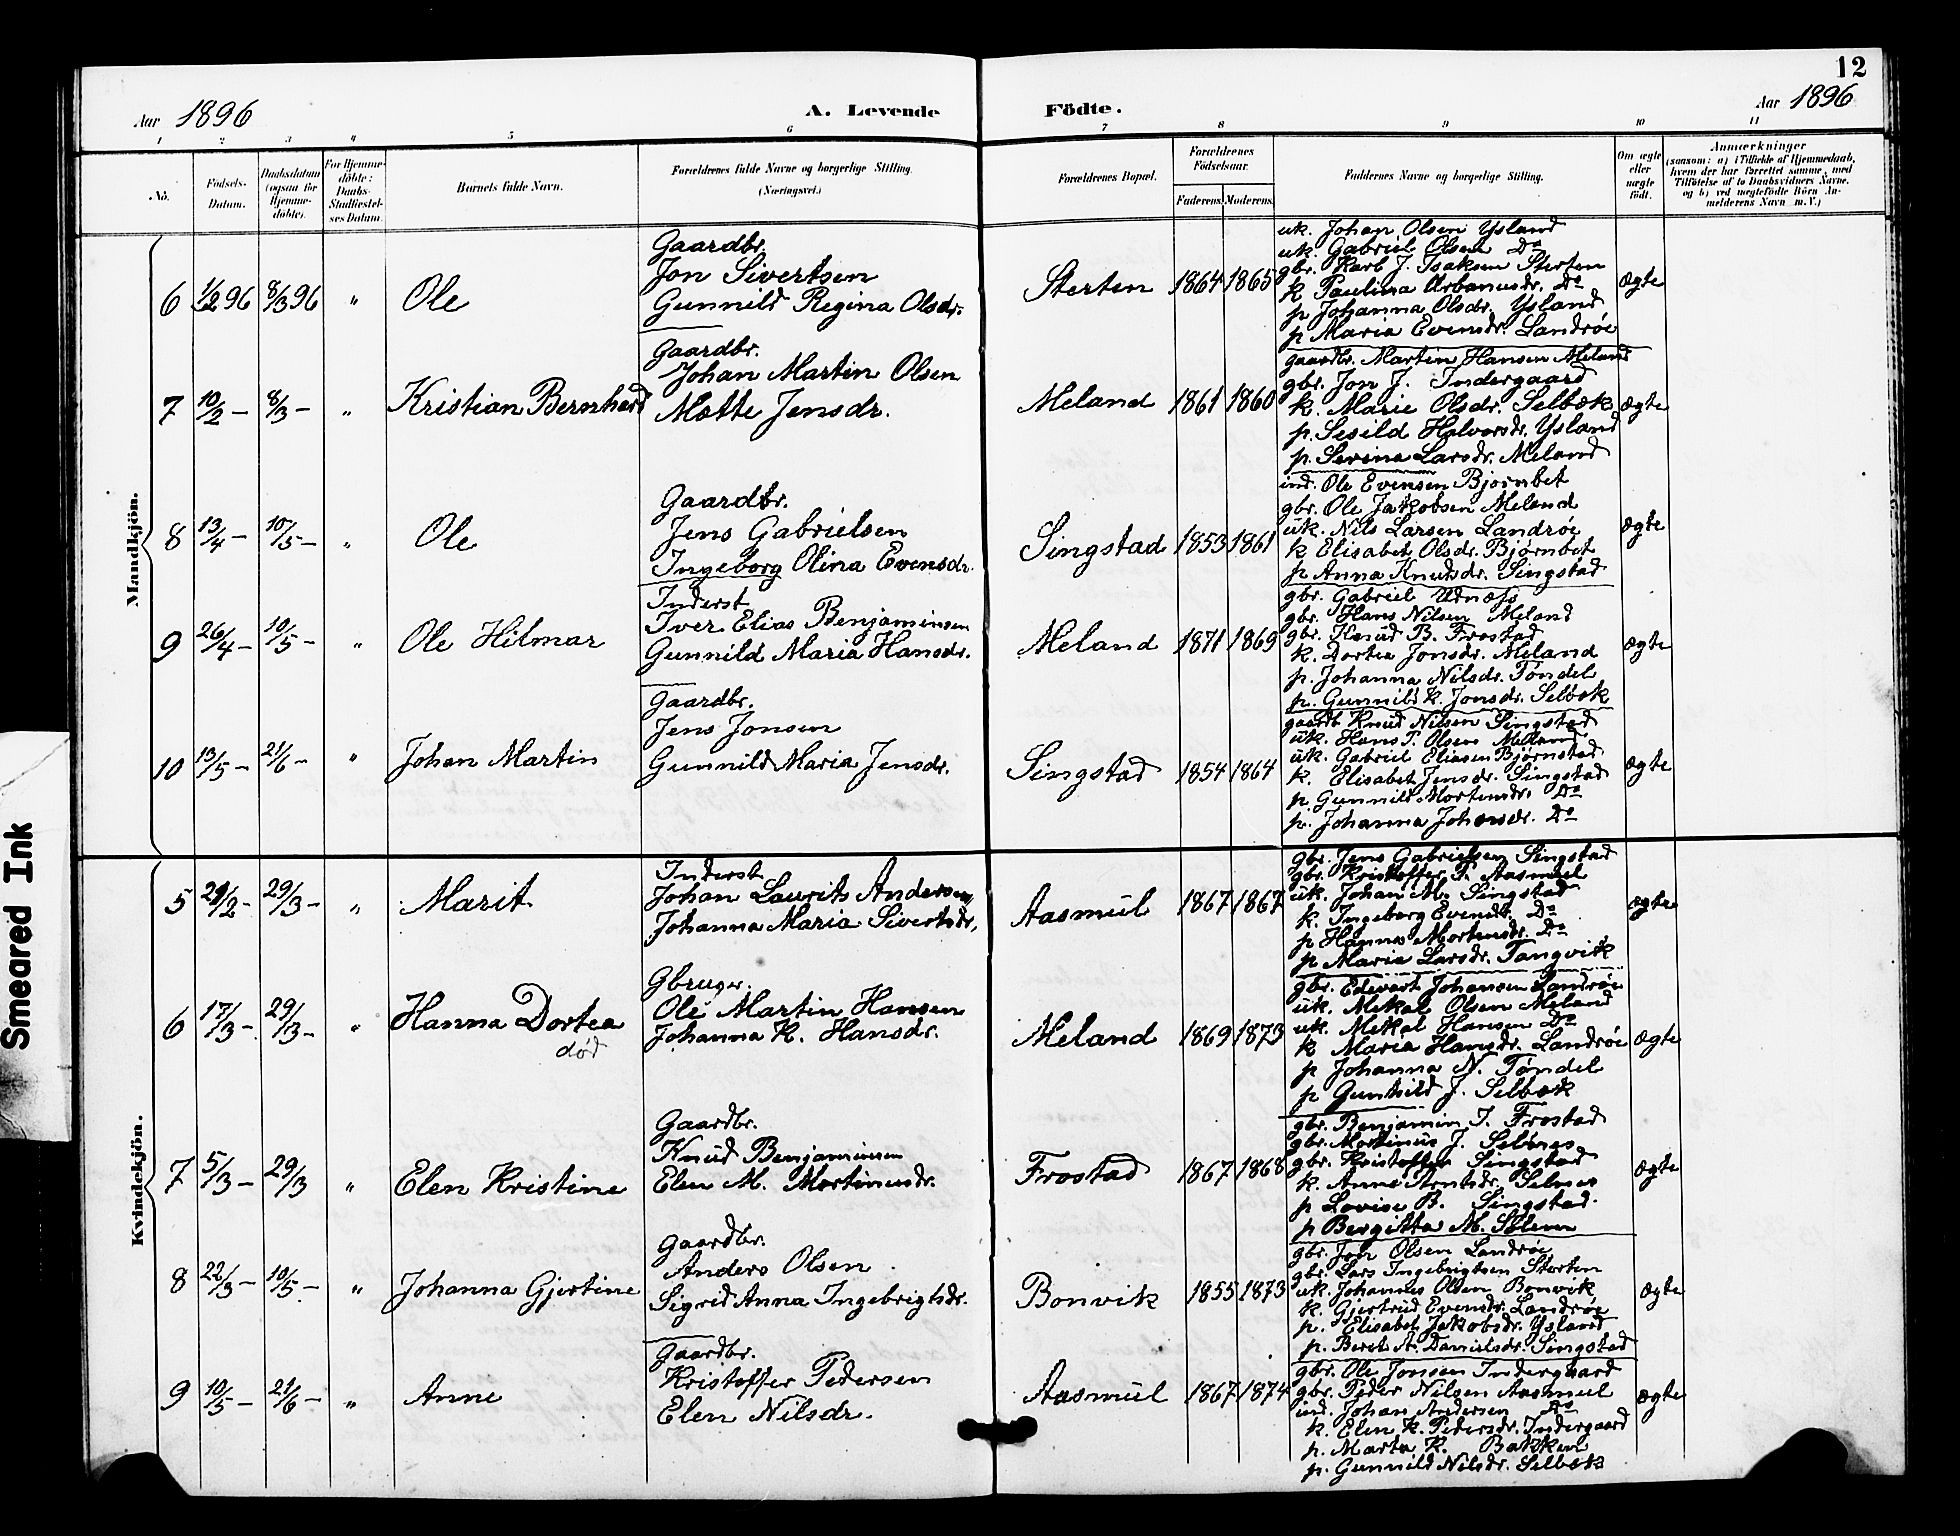 12
Aar 1896
A. Levende Födte.
Aar 1896
1 2 3 4 5 6 7 8 9 10 11
No.
Födsels-Datum.
Daabsdatum (ogsaa for Hjemme-döbte).
For Hjemme-döbte: Daabs-Stadfæstel-ses Datum.
Barnets fulde Navn.
Forældrenes fulde Navne og borgerlige Stilling. (Næringsvei.)
Forældrenes Bopæl.
Forældrenes Födselsaar.
Faderens. Moderens.
Faddernes Navne og borgerlige Stilling.
Om ægte eller uægte födt.
Anmærkninger
(saasom: a) i Tilfælde af Hjemmedaab, hvem der har forrettet samme, med Tilföielse af to Daabsvidners Navne, og b) ved uegtefödte Börn An-melderens Navn m. V.)
Mandkjön.
6 1/2 96 8/3 96 " Ole
Gaardbr.
Jon Sivertsen
Gunnild Regina Olsdr.
Sterten 1864 1865
uk. Johan Olsen Ysland
uk. Gabriel Olsen Do
gbr. Karl J. Isaksen Sterten
k Paulina Urbanusdr. Do
p Johanna Olsdr. Ysland
p Maria Evensdr. Landrøe
Ægte
7 10/2 – 8/3 – " Kristian Bernhard
Gaardbr.
Johan Martin Olsen
Mætte Jensdr.
Meland 1861 1860
gaardbr. Martin Hansen Meland
gbr. Jon J. Indergaard
k. Marie Olsdr. Selbæk
p. Sesild Halvorsdr. Ysland
p. Serina Larsdr. Meland
Ægte
8 13/4 – 10/5 – " Ole
Gaardbr.
Jens Gabrielsen
Ingeborg Olina Evensdr.
Singstad 1853 1861
ind. Ole Evensen Bjørnbet
gbr. Ole Jakobsen Meland
uk. Nils Larsen Landrøe
k Elisabet Olsdr. Bjørnbet
p Anna Knutsdr. Singstad
Ægte
9 26/4 – 10/5 – " Ole Hilmar
Inderst
Iver Elias Benjaminsen
Gunnild Maria Hansdr.
Meland 1871 1869
gbr. Gabriel Udnæss
gbr. Hans Nilsen Meland
gbr. Knud B. Frostad
k. Dortea Jonsdr. Meland
p. Johanna Nilsdr. Tøndel
p. Gunnild K. Jonsdr. Selbæk
Ægte
10 13/5 – 21/6 – " Johan Martin
Gaardbr.
Jens Jonsen
Gunnild Maria Jensdr.
Singstad 1854 1864
gaardb. Knud Nilsen Singstad
uk. Hans T. Olsen Meland
uk. Gabriel Eliasen Bjørnstad
k. Elisabet Jensdr. Singstad
p Gunnild Mortensdr. Do
p. Johanna Johansdr. Do
Ægte
Kvindekjön.
5 29/2 – 29/3 – " Marit
Inderst
Johan Laurits Andersen,
Johanna Maria Sivertsdr,
Aasmul 1867 1867
gbr. Jens Gabrielsen Singstad
gbr. Kristoffer P. Aasmul
uk. Johan M. Singstad
k. Ingeborg Evensdr. Do
p Hanna Mortensdr. Do
p Maria Larsdr. Tangvik
Ægte
6 17/3 – 29/3 – " Hanna Dortea
død
Gbruger.
Ole Martin Hansen
Johanna K. Hansdr.
Meland 1869 1873
gbr. Edevart Johansen Landrøe
uk. Mekal Olsen Meland
uk. Mekal Hansen Do
k Maria Hansdr. Landrøe
p Johanna N. Tøndel
p Gunhild J. Selbæk
Ægte
7 5/3 – 29/3 " Elen Kristine
Gaardbr.
Knud Benjaminsen
Elen M. Martinusdr.
Frostad 1867 1868
gbr. Benjamin I. Frostad
gbr. Martinus J. Selnes
gbr. Kristoffer Singstad
k. Anne Arntsdr. Selnes
p Lovise B. Singstad.
p Bergitta M. Solem
Ægte
8 22/3 – 10/5 – " Johanna Gjertine
Gaardbr.
Anders Olsen
Sigrid Anna Ingebrigtsdr.
Bonvik 1855 1873
gbr. Jon Olsen Landrøe,
gbr. Lars Ingebrigtsen Sterten
uk. Johannes Olsen Bonvik
k. Gjertrud Evensdr. Landrøe
p. Elisabet Jakobsdr. Ysland
p. Beret A. Danielsdr. Singstad
Ægte
9 10/5 – 21/6 – " Anne
Gaardbr.
Kristoffer Pedersen
Elen Nilsdr.
Aasmul 1867 1874
gbr. Ole Jonsen Indergaard
gbr. Peder Nilsen Aasmul
ind. Johan Andersen Do
k. Elen K. Pedersdr. Indergaard
p. Marta K. Bakken
p. Gunnild Nilsdr. Selbæk
Ægte
Smeared Ink